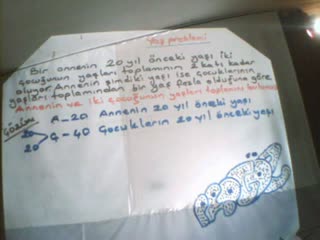 Yaş problemi
Bir annenin 20 yıl önceki yaşı iki
çocuğunun yaşları toplamının 2 katı kadar
oluyor. Annenin şimdiki yaşı ise çocuklarının
yaşları toplamından bir yaş fazla olduğuna göre
Annenin ve iki çocuğunun yaşları toplamı
ÇÖZÜM
A-20 Annenin 20 yıl önceki yaşı
Ç-40 Çocukların 20 yıl önceki yaşı
20